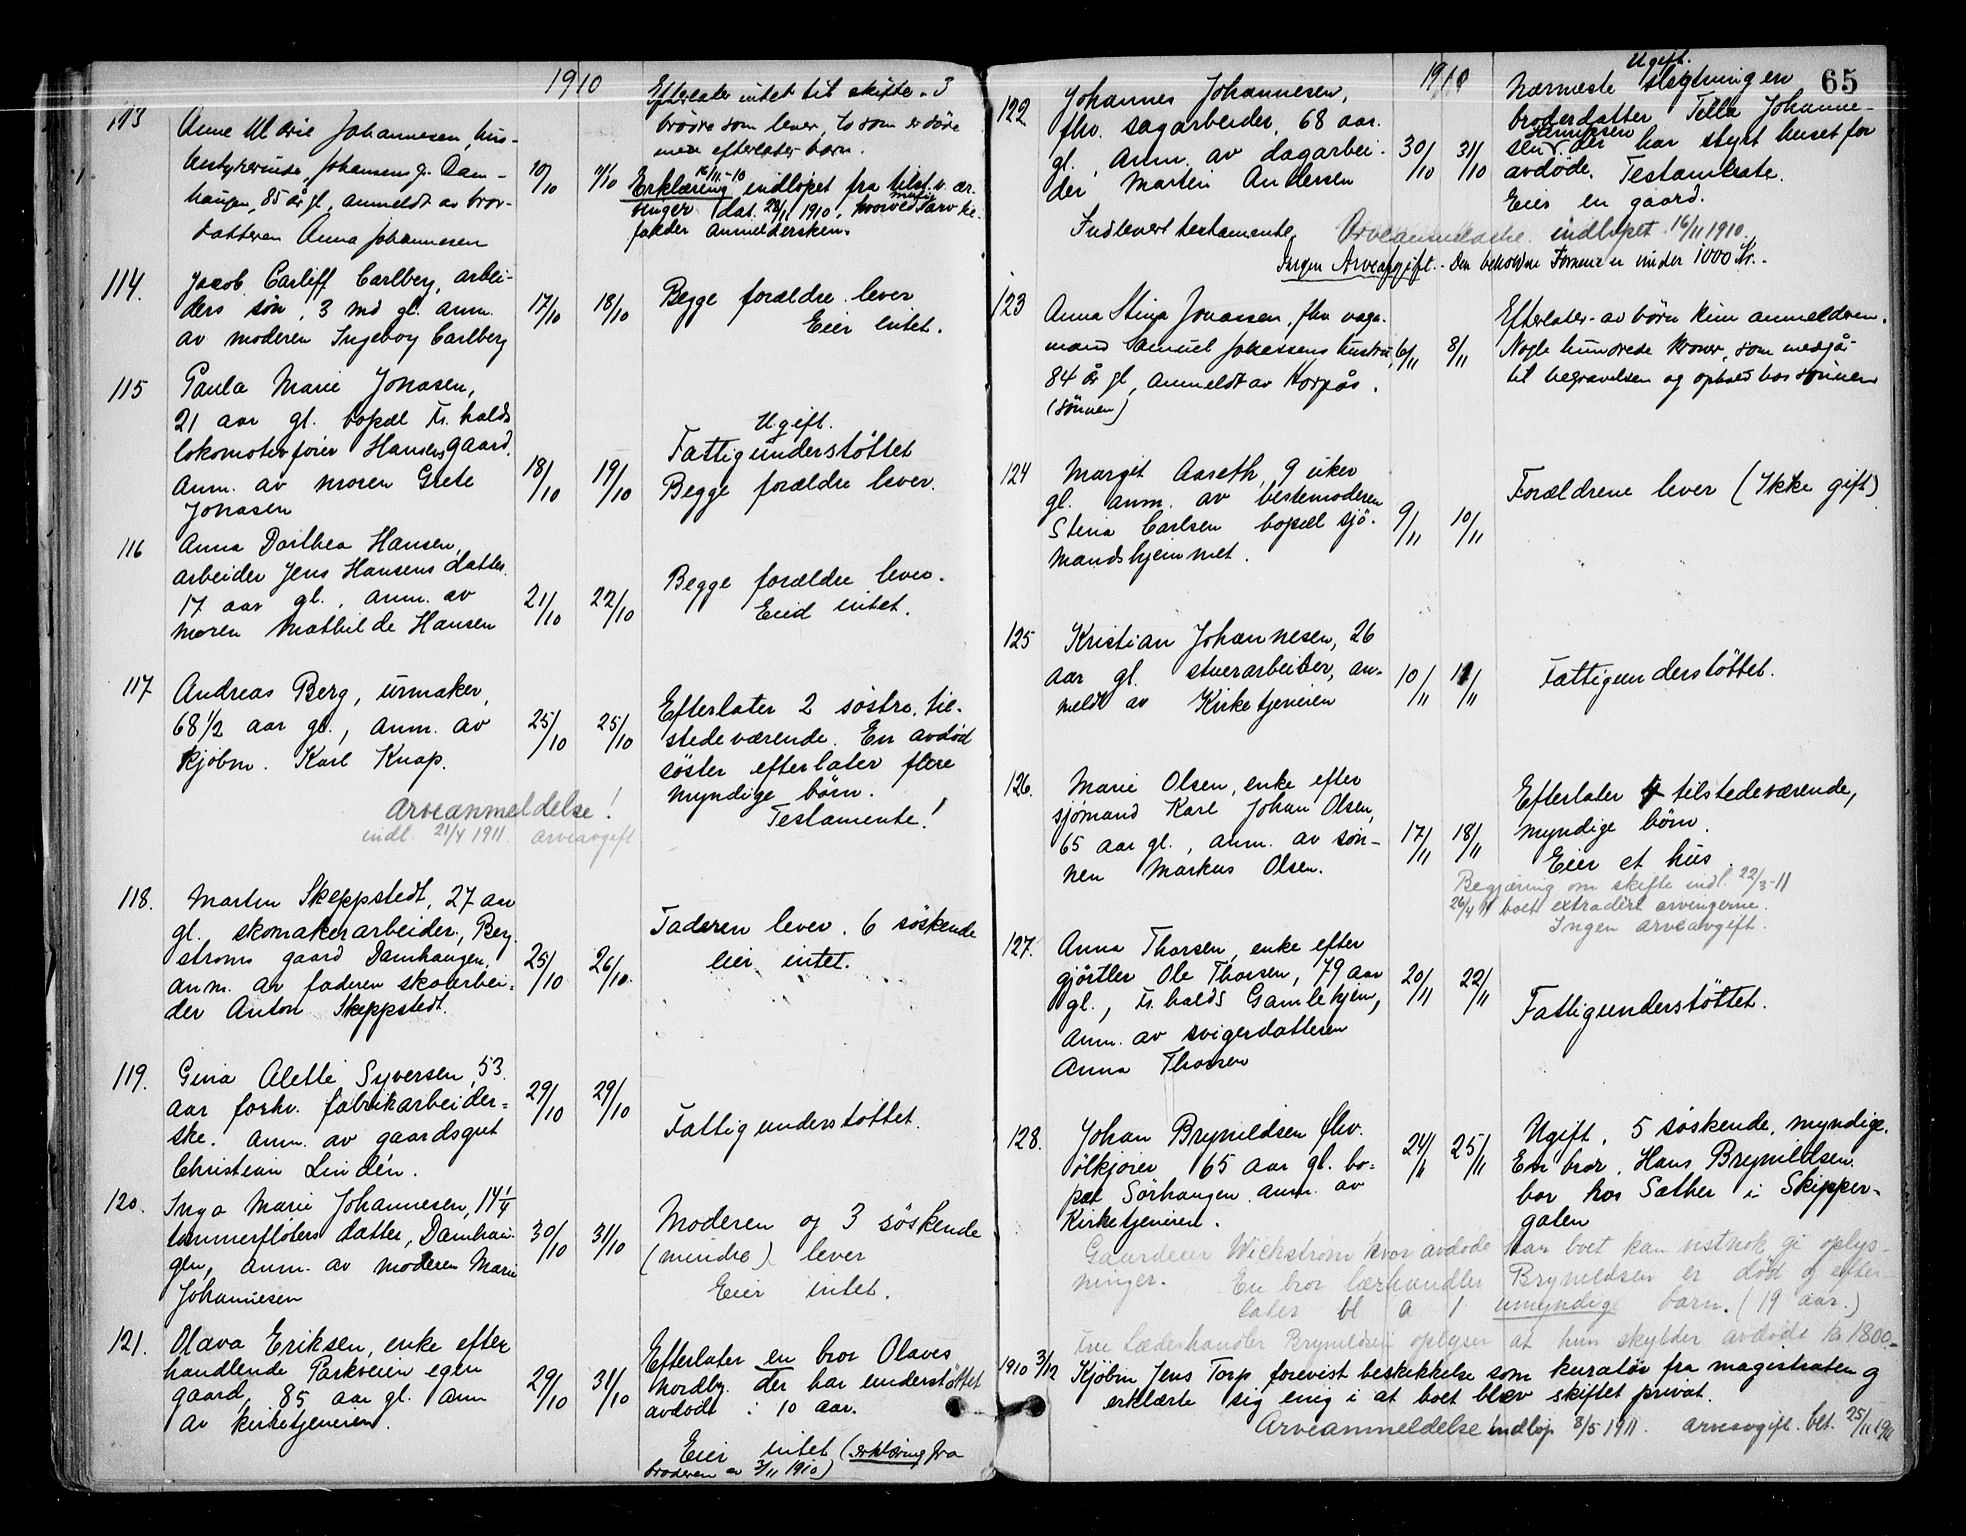 1910
113 Anne Marie Johannesen, hus-
bestyrerinde, Johansens g. Dam-
haugen, 85 år gl, anmeldt av bror-
datteren Anna Johannesen
10/10 11/10
Efterlater intet til skifte. 3
brødre som lever, to som er døde
men efterlater barn.
16/11-10
Erklæring indløpet fra tilst. v. ar-
vinger dat. 28/11 1910, hvorved arv
frafalder anmeldersken.
114. Jacob Carliff Carlberg, arbei-
ders søn, 3 md gl. anm.
av moderen Ingeborg Carlberg
17/10 18/10
Begge forældre lever
Eier intet.
115 Paula Marie Jonasen,
21 aar gl. bopæl Fr. halds
lokomotivfører Hansens gaard.
Anm. av moren Grete
Jonasen
18/10 19/10
Ugift.
Fattigunderstöttet
Begge forældre lever.
116 Anna Dorthea Hansen,
arbeider Jens Hansens datter
17 aar gl., anm. av
moren Mathilde Hansen
21/10 22/10
Begge forældre lever.
Eied intet.
117 Andreas Berg, urmaker,
68 1/2 aar gl., anm. av
kjöbm. Karl Knap.
25/10 25/10
Efterlater 2 söstre, til-
stedeværende. En avdöd
söster efterlater flere
myndige börn.
Testamente!
Arveanmeldelse!
indl. 21/4 1911. arveavgift
118. Martin Skeppstedt, 27 aar
gl. skomakerarbeider, Berg-
ströms gaard Damhaugen.
anm. av faderen skoarbei-
der Anton Skeppstedt.
25/10 26/10.
Faderen lever. 6 söskende
eier intet.
119. Gina Alette Syversen, 53
aar forhv. fabrikarbeider-
ske. Anm. av gaardsgut
Christian Lindén.
29/10 29/10
Fattigunderstöttet.
120. Inga Marie Johannesen, 14 1/4
tömmerflöters datter, Damhau-
gen, anm. av moderen Marie
Johannesen
30/10 31/10
Moderen og 3 söskende
(mindre) lever
Eier intet.
121. Olava Eriksen, enke efter
handlende Parkveien egen
gaard, 85 aar gl. anm
av kirketjeneren.
29/10 31/10
Efterlater en bror Olaves
Nordby. der har understöttet
avdöde i 10 aar.
Eier intet (erklæring fra
broderen av 3/11 1910)
65
1910
122 Johannes Johannesen,
fhv. sagarbeider, 68 aar.
gl., Anm. av dagarbei-
der Martin Andersen
30/10 31/10
Ugift.
Nærmeste slegtning en
broderdatter Tilla Johanne-
sen Henriksen der har styrt huset for
avdøde. Testamente.
Eier en gaard.
Indlevert testamente. Arveanmeldelse indløpet 16/11 1910.
Ingen Arveavgift. - Den beholdne Formue er under 1000 Kr. -
123 Anna Stina Jonassen, fhv vogn-
mand Samuel Johansens hustru
84 år gl, Anmeldt av Korpås.
(sønnen)
6/11 8/11
Efterlater av børn kun anmelderen.
Nogle hundrede kroner, som medgår
til begravelsen og ophold hos sønnen
124 Margit Aaseth, 9 uker
gl. anm. av bestemoderen
Stina Carlsen bopæl sjö-
mandshjemmet.
9/11 10/11
Forældrene lever (Ikke gift)
125 Kristian Johannesen, 26
aar gl. stuerarbeider, an-
meldt av Kirketjeneren
10/11 11/11
Fattigunderstöttet.
126. Marie Olsen, enke efter
sjömand Karl Johan Olsen,
65 aar gl., anm. av søn-
nen Markus Olsen.
17/11 18/11
Efterlater 4 tilstedeværende,
myndige börn.
Eier et hus.
Begjæring om skifte indl. 22/3-11
26/4 11 boet extradert arvingerne.
Ingen arveavgift.
127. Anna Thorsen, enke efter
gjörtler Ole Thorsen, 79 aar
gl., Fr. halds Gamlehjem,
Anm. av svigerdatteren
Anna Thorsen
20/11 22/11
Fattigunderstöttet.
128. Johan Brynildsen, fhv.
ölkjörer, 65 aar gl. bo-
pæl Sörhaugen. anm. av
Kirketjeneren.
24/11 25/11
Ugift. 5 søskende, myndige.
Em bror, Hans Brynildsen.
bor hos Sæther i Skipper-
gaten
Gaardeier Wickström hvor avdøde har boet kan vistnok gi oplys-
ninger. En bror lærhandler Brynildsen er død og efter-
later bl a 1 umyndigt barn. (19 aar.)
Fru Læderhandler Brynildsen oplyser at hun skylder avdøde kr 1800.-
1910 3/12 Kjöbm Jens Torp forevist beskikkelse som kurator fra magistraten og
erklærte sig enig i at boet blev skiftet privat.
Arveanmeldelse indløp 8/5 1911. arveavgift. bet. 25/11 1911